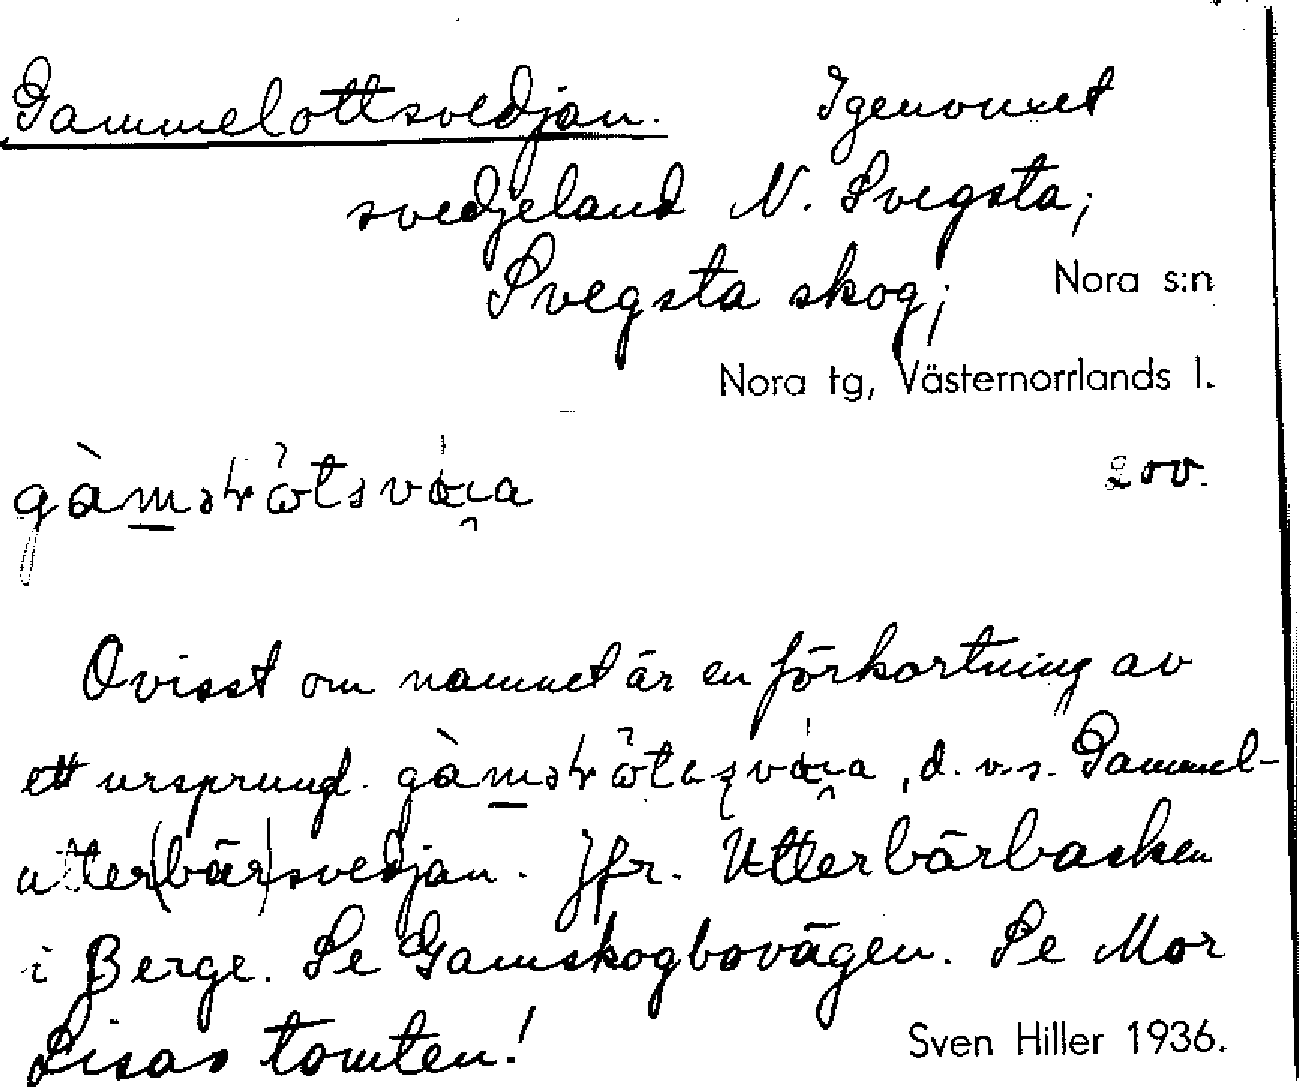 Gammelottsvedjan. Igenvuxet
svedjeland N. Svegsta;
Svegsta skog; Nora s:n
Nora tg, Västernorrlands l.
Ovisst om namnet är en förkortning av
ett ursprungl. , d.v.s. Gammel-
utter(bär)svedjan. Jfr. Utterbärbacken
i Berge. Se Gamskogbovägen. Se Mor
Lisas tomten!
Sven Hiller 1936.